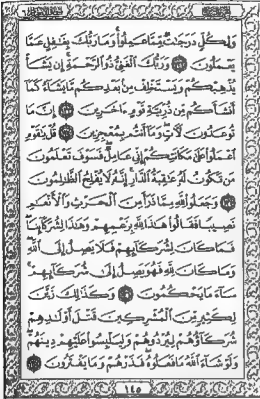 وَلِكُلٍّ دَرَجَٰتٌ مِّمَّا عَمِلُوا۟ وَمَا رَبُّكَ بِغَٰفِلٍ عَمَّا
يَعْمَلُونَ ١٣٢ وَرَبُّكَ ٱلْغَنِىُّ ذُو ٱلرَّحْمَةِ إِن يَشَأْ
يُذْهِبْكُمْ وَيَسْتَخْلِفْ مِنۢ بَعْدِكُم مَّا يَشَآءُ كَمَآ
أَنشَأَكُم مِّن ذُرِّيَّةِ قَوْمٍ ءَاخَرِينَ ١٣٣ إِنَّ مَا
تُوعَدُونَ لَءَاتٍ وَمَآ أَنتُم بِمُعْجِزِينَ ١٣٤ قُلْ يَٰقَوْمِ
ٱعْمَلُوا۟ عَلَىٰ مَكَانَتِكُمْ إِنِّى عَامِلٌ فَسَوْفَ تَعْلَمُونَ
مَن تَكُونُ لَهُۥ عَٰقِبَةُ ٱلدَّارِ إِنَّهُۥ لَا يُفْلِحُ ٱلظَّٰلِمُونَ
١٣٥ وَجَعَلُوا۟ لِلَّهِ مِمَّا ذَرَأَ مِنَ ٱلْحَرْثِ وَٱلْأَنْعَٰمِ
نَصِيبًا فَقَالُوا۟ هَٰذَا لِلَّهِ بِزَعْمِهِمْ وَهَٰذَا لِشُرَكَآئِنَا
فَمَا كَانَ لِشُرَكَآئِهِمْ فَلَا يَصِلُ إِلَى ٱللَّهِ
وَمَا كَانَ لِلَّهِ فَهُوَ يَصِلُ إِلَىٰ شُرَكَآئِهِمْ
سَآءَ مَا يَحْكُمُونَ ١٣٦ وَكَذَٰلِكَ زَيَّنَ
لِكَثِيرٍ مِّنَ ٱلْمُشْرِكِينَ قَتْلَ أَوْلَٰدِهِمْ
شُرَكَآؤُهُمْ لِيُرْدُوهُمْ وَلِيَلْبِسُوا۟ عَلَيْهِمْ دِينَهُمْ
وَلَوْ شَآءَ ٱللَّهُ مَا فَعَلُوهُ فَذَرْهُمْ وَمَا يَفْتَرُونَ ١٣٧
١٤٥